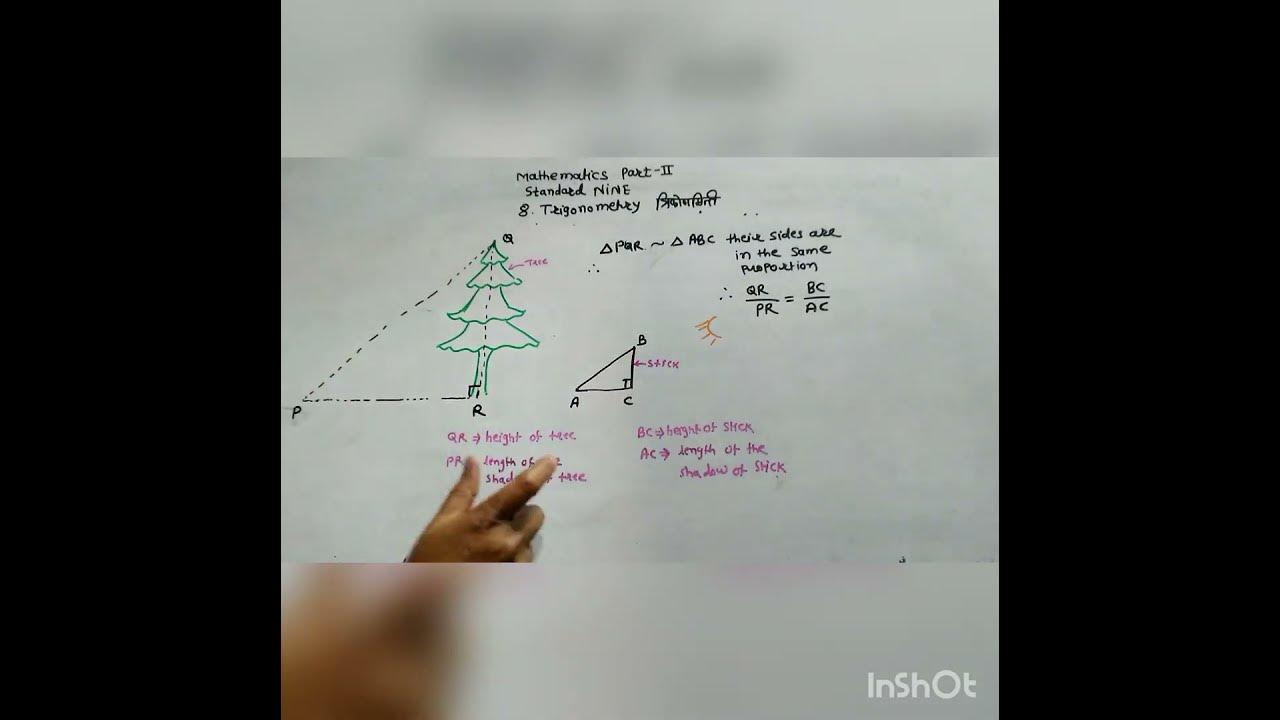 Mathematics Part-II
Standard NINE
8. Trigonometry त्रिकोणमिती
Q
Tree
△PQR ~ △ABC their sides are
in the same
proportion
∴
∴ QR/PR = BC/AC
B
stick
P
R
A
C
QR ⇒ height of tree
BC ⇒ height of stick
PR length of
shadow of tree
AC ⇒ length of the
shadow of stick
InShOt